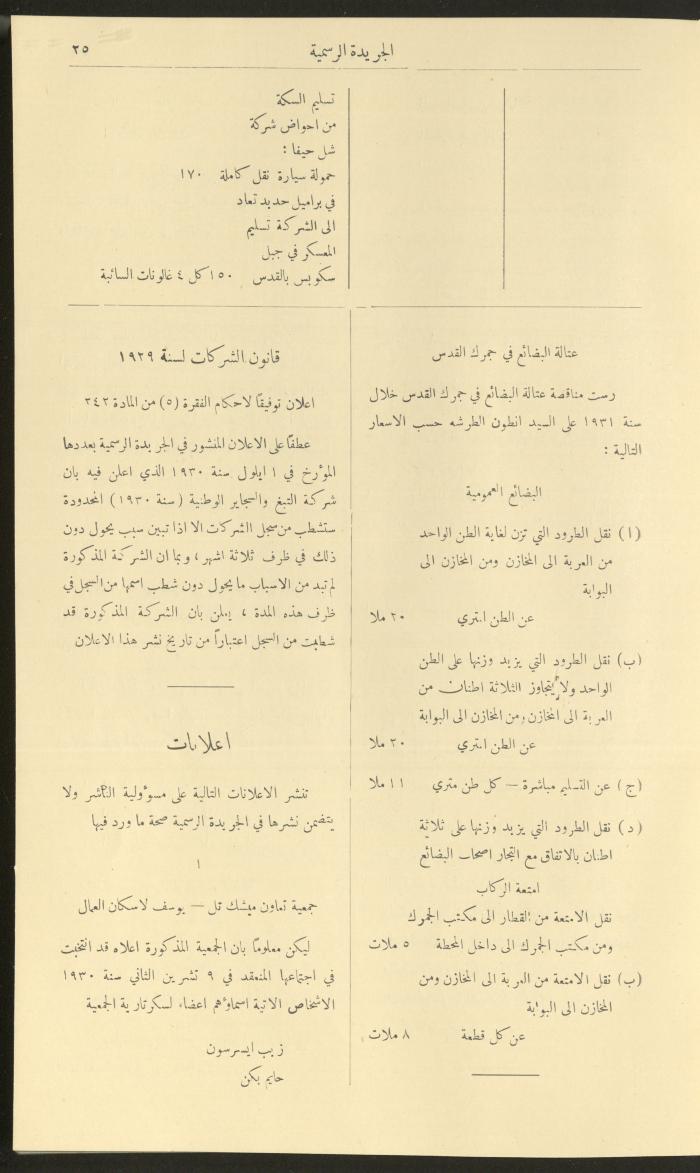 الجريدة الرسمية
٢٥
تسليم السكة
من احواض شركة
شل حيفا :
حمولة سيارة نقل كاملة ١٧٠
في براميل حديد تعاد
الى الشركة تسليم
المعسكر في جبل
سكوبس بالقدس ١٥٠ كل ٤ غالونات السائبة
عتالة البضائع في جمرك القدس
رست مناقصة عتالة البضائع في جمرك القدس خلال
سنة ١٩٣١ على السيد انطون الطرشه حسب الاسعار
التالية :
البضائع العمومية
(ا) نقل الطرود التي تزن لغاية الطن الواحد
من العربة الى المخازن ومن المخازن الى
البوابة
عن الطن المتري ٢٠ ملا
(ب) نقل الطرود التي يزيد وزنها على الطن
الواحد ولا يتجاوز الثلاثة اطنان من
العربة الى المخازن ومن المخازن الى البوابة
عن الطن المتري ٢٠ ملا
(ج) عن التسليم مباشرة — كل طن متري ١١ ملا
(د) نقل الطرود التي يزيد وزنها على ثلاثة
اطنان بالاتفاق مع التجار اصحاب البضائع
امتعة الركاب
نقل الامتعة من القطار الى مكتب الجمرك
ومن مكتب الجمرك الى داخل المحطة ٥ ملات
(ب) نقل الامتعة من العربة الى المخازن ومن
المخازن الى البوابة
عن كل قطعة ٨ ملات
قانون الشركات لسنة ١٩٢٩
اعلان توفيقًا لاحكام الفقرة (٥) من المادة ٢٤٢
عطفًا على الاعلان المنشور في الجريدة الرسمية بعددها
المؤرخ في ١ ايلول سنة ١٩٣٠ الذي اعلن فيه بان
شركة التبغ والسجاير الوطنية (سنة ١٩٣٠) المحدودة
ستشطب من سجل الشركات الا اذا تبين سبب يحول دون
ذلك في ظرف ثلاثة اشهر ، وبما ان الشركة المذكورة
لم تبد من الاسباب ما يحول دون شطب اسمها من السجل في
ظرف هذه المدة ، يعلن بان الشركة المذكورة قد
شطبت من السجل اعتباراً من تاريخ نشر هذا الاعلان
اعلانات
تنشر الاعلانات التالية على مسؤولية الناشر ولا
يتضمن نشرها في الجريدة الرسمية صحة ما ورد فيها
١
جمعية تعاون ميشك تل — يوسف لاسكان العمال
ليكن معلومًا بان الجمعية المذكورة اعلاه قد انتخبت
في اجتماعها المنعقد في ٩ تشرين الثاني سنة ١٩٣٠
الاشخاص الاتية اسماؤهم اعضاء لسكرتارية الجمعية
زيب ايسرسون
حايم بكن